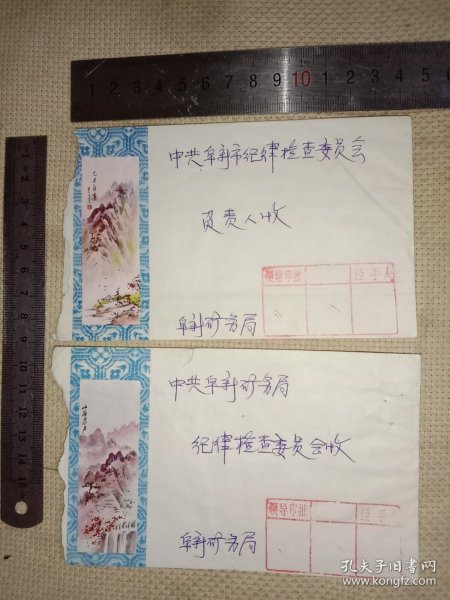 1 2 3 4 5 6 7 8 9 10 1 2 3 4 5 6
中共阜新市纪律检查委员会
负责人收
领导审批 经手人
阜新矿务局
中共阜新矿务局
纪律检查委员会收
领导审批 经手
阜新矿务局
1 2 3 4 5 6 7 8 9 10 11 12 13 14 15
孔夫子旧书网
www.kongfz.com